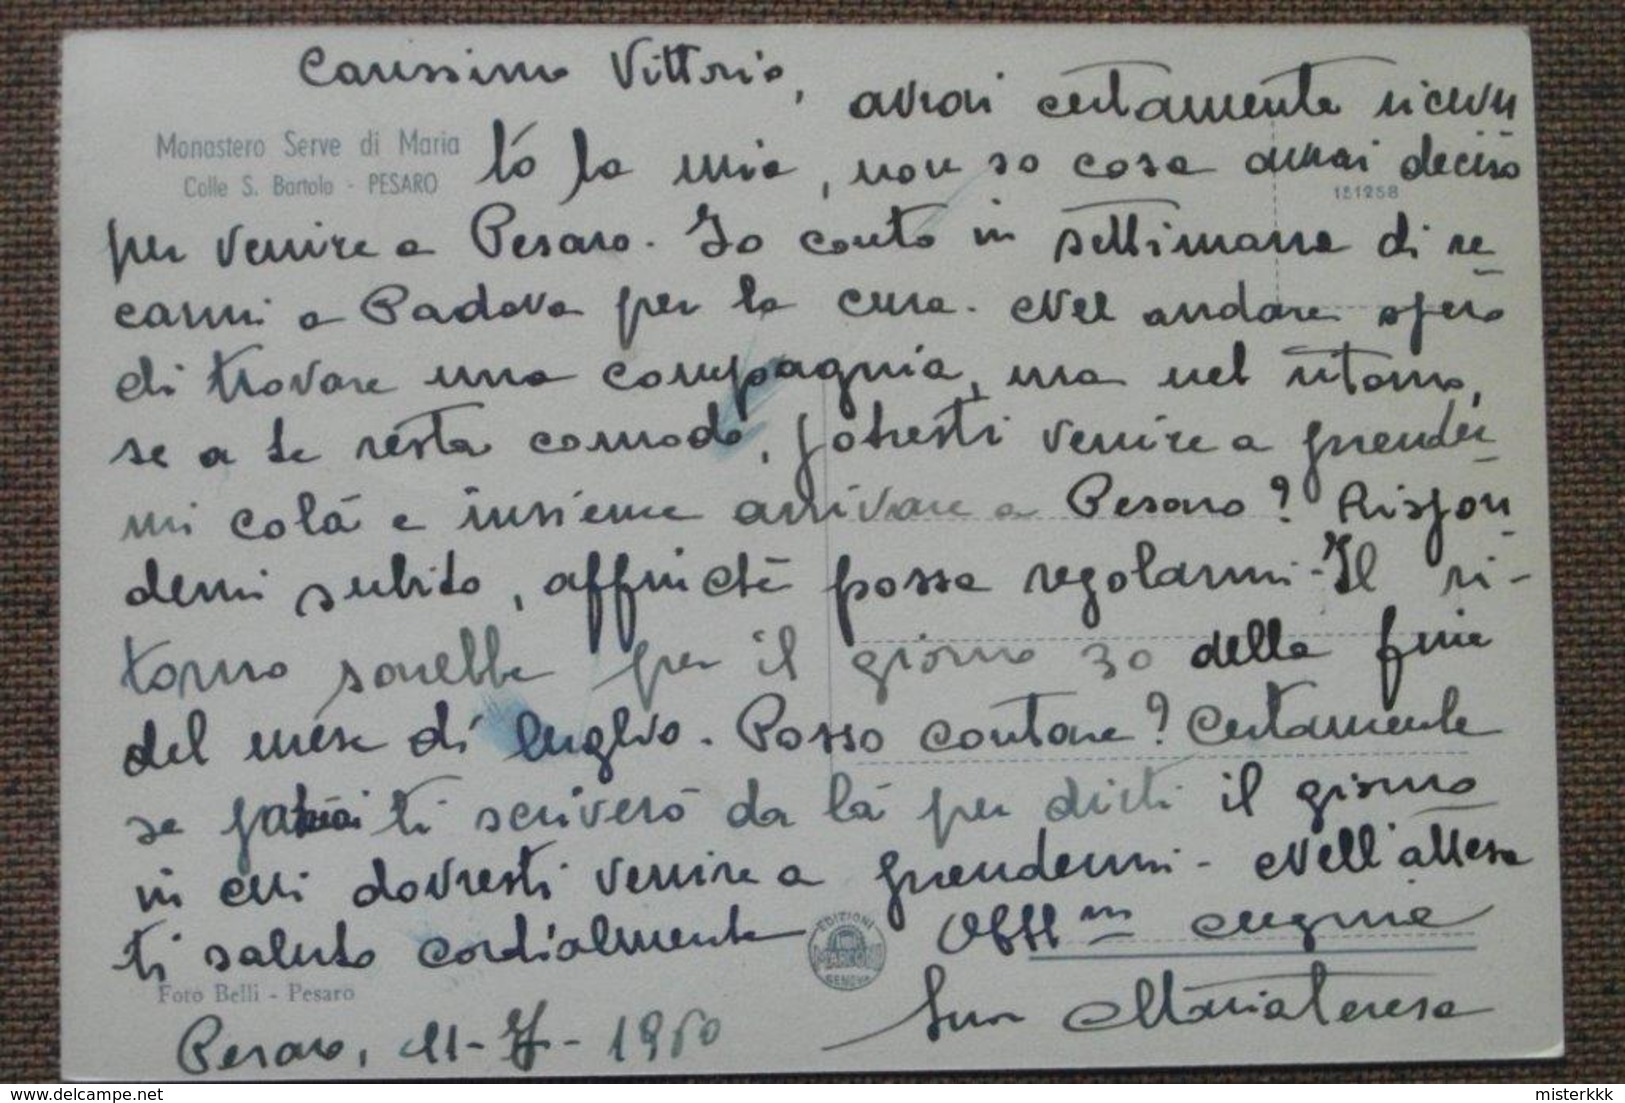 Carissimo Vittorio,
avrai certamente ricevu
Monastero Serve di Maria
Colle S. Bartolo - PESARO
to la mia, non so cosa avrai deciso
151258
per venire a Pesaro. Io conto in settimana di re
carmi a Padova per la cura. Nel andare spero
di trovare una compagnia, ma nel ritorno,
se a te resta comodo, potresti venire a prender
mi colà e insieme arrivare a Pesaro? Rispon
demi subito, affinché possa regolarmi - Il ri-
torno sarebbe per il giorno 30 della fine
del mese di luglio. Posso contare? Certamente
se potrai ti scriverò da là per dirti il giorno
in cui dovresti venire a prendermi - Nell'attesa
ti saluto cordialmente
EDIZIONI
MARCONI
GENOVA
Obbl ma cugina
Foto Belli - Pesaro
Suor Maria Teresa
Pesaro, 11-7-1960
delcampe.net
misterkkk